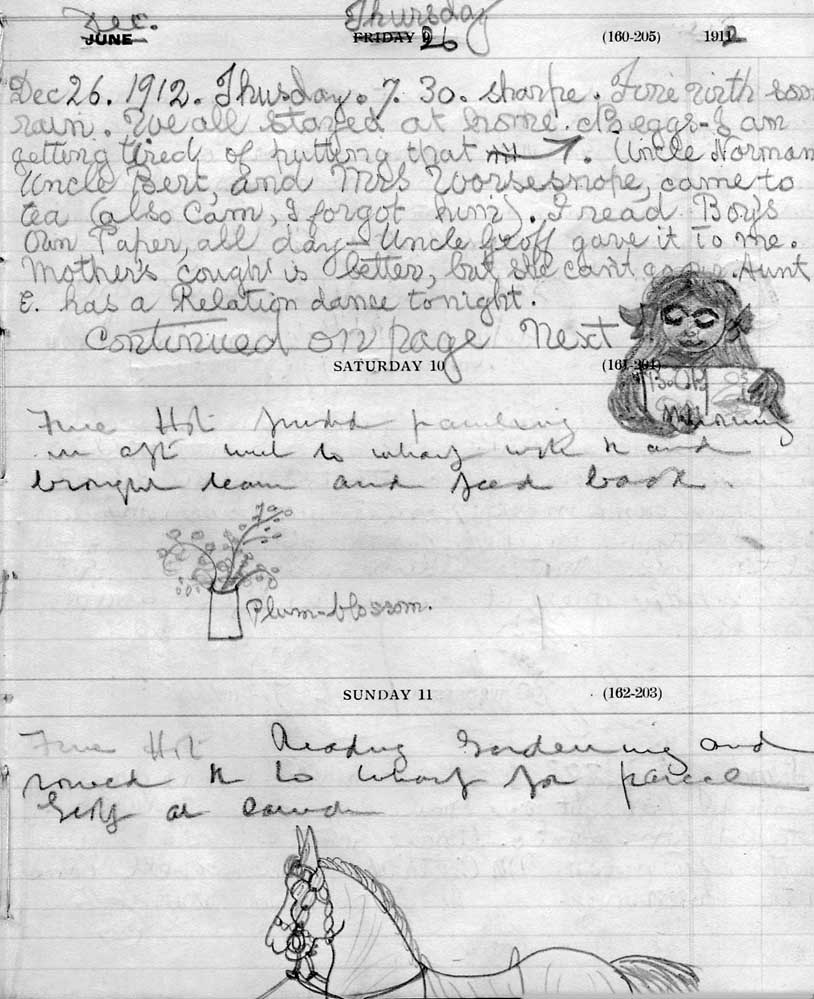 Dec. Thursday
JUNE FRIDAY 9 26 (160-205) 1912
Dec 26. 1912. Thusday. 7. 30. sharpe. Fine with som
rain. We all stayed at home. eggs- I am
getting tired of putting that . Uncle Norman
Uncle Bert, and Mrs Worsesnope, came to
tea (also Cam, I forgot him). I read Boy's
Own Paper, all day - Uncle Geoff gave it to me.
Mother's cought is better, but she cant Aunt
E. has a Relation dance tonight.
Continued on page Next
SATURDAY 10 (161-204)
BOOK
Fine Hot morning
in aft to wharf with and
brought and book
Plum-blossom.
SUNDAY 11 (162-203)
Fine Hot Reading Gardening and
rowed to wharf for parcel